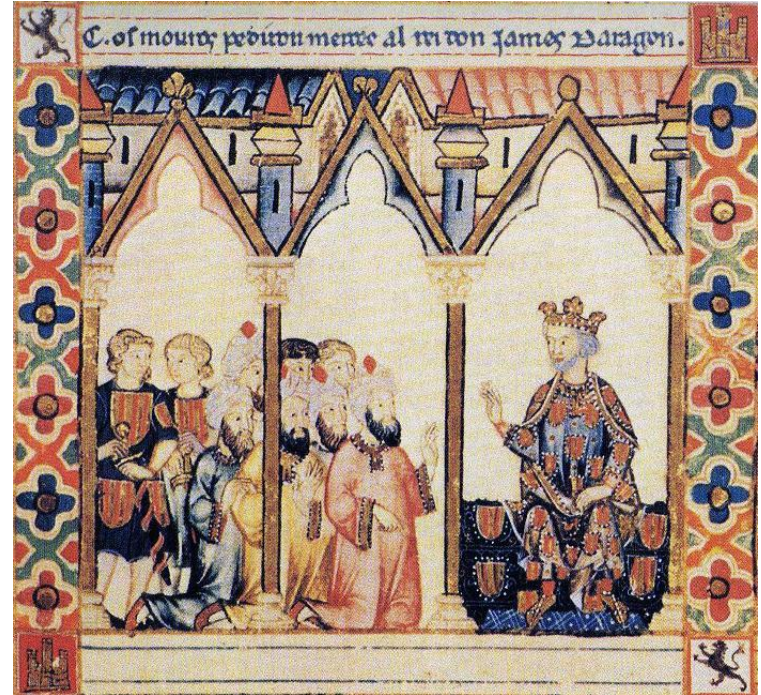 C. os mouros pediron merçee al rei don James Daragon.